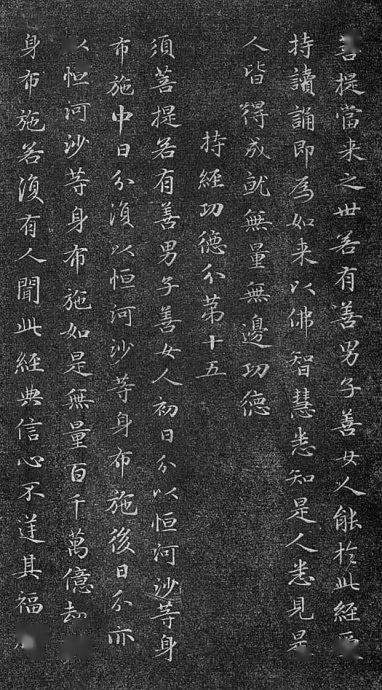 菩提當来之世若有善男子善女人能於此經受
持讀誦即為如来以佛智慧悉知是人悉見是
人皆得成就無量無邊功德
持經功德分苐十五
須菩提若有善男子善女人初日分以恒河沙等身
布施中日分復以恒河沙等身布施後日分亦
以恒河沙等身布施如是無量百千萬億劫
身布施若復有人聞此經典信心不逆其福